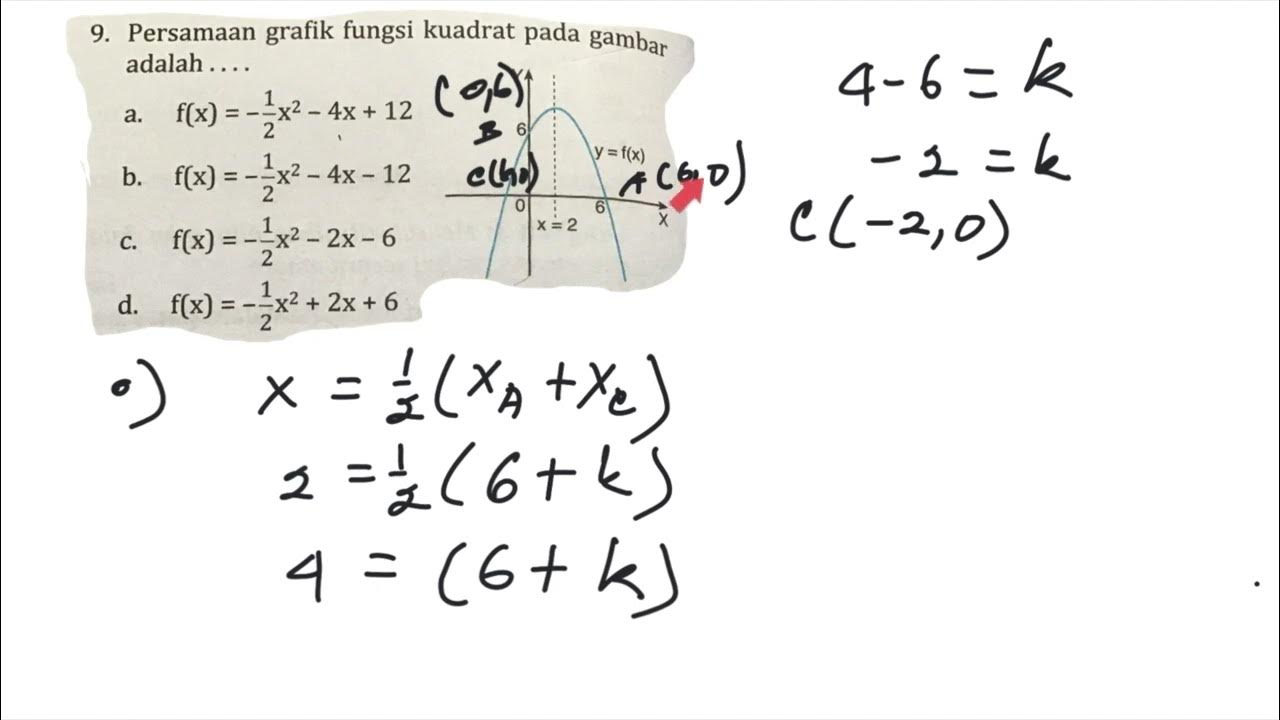 9. Persamaan grafik fungsi kuadrat pada gambar
adalah . . . .
a. f(x) = –1/2x² – 4x + 12
b. f(x) = –1/2x² – 4x – 12
c. f(x) = –1/2x² – 2x – 6
d. f(x) = –1/2x² + 2x + 6
(0,6)
Y
B
6
y = f(x)
C(k,0)
A (6,0)
0
6
X
x = 2
4 - 6 = k
- 2 = k
C(-2,0)
•) x = 1/2 (xA + xC)
2 = 1/2 (6 + k)
4 = (6 + k)